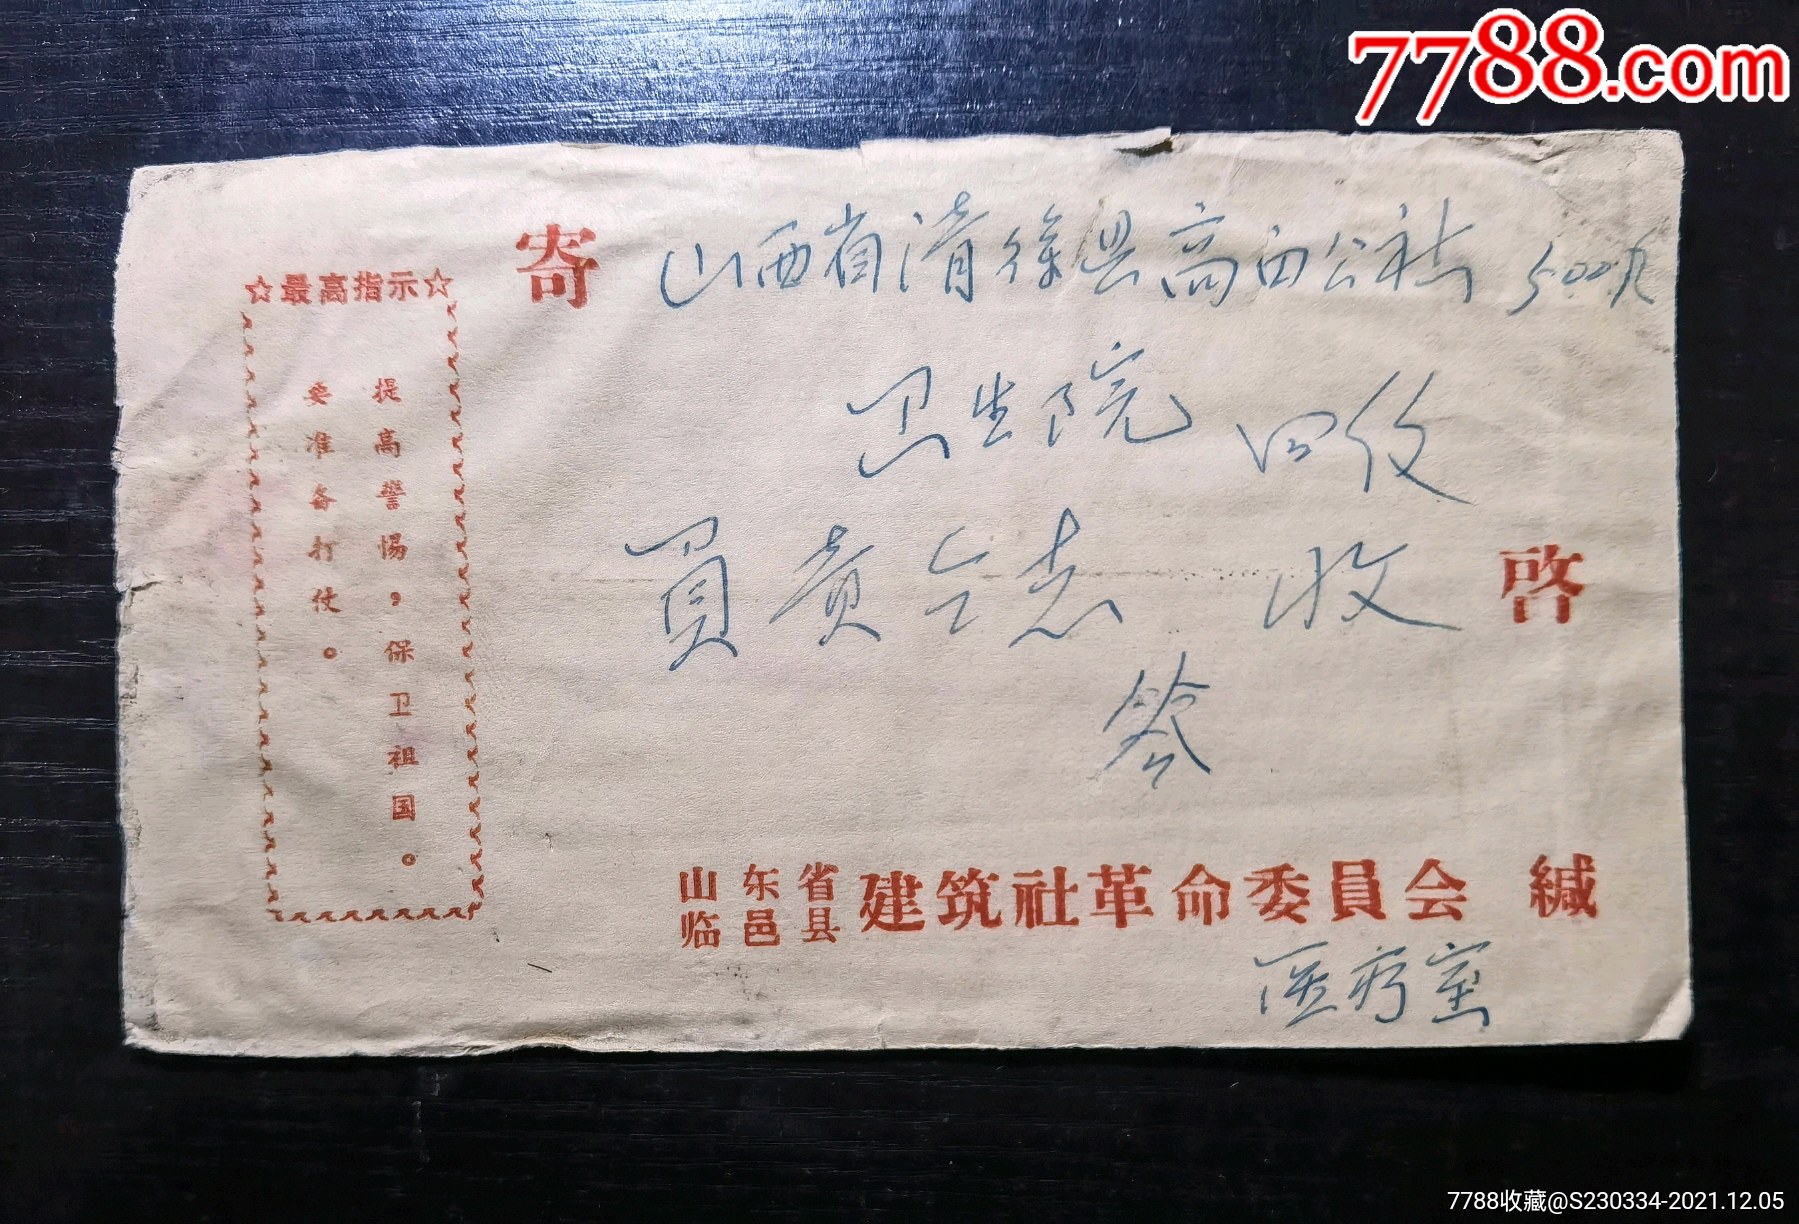 7788.com
寄 山西省清徐县高白公社
卫生院 收
收 启
☆最高指示☆
提高警惕，保卫祖国。
要准备打仗。
山东省
临邑县 建筑社革命委員会 緘
医疗室
7788收藏@S230334-2021.12.05